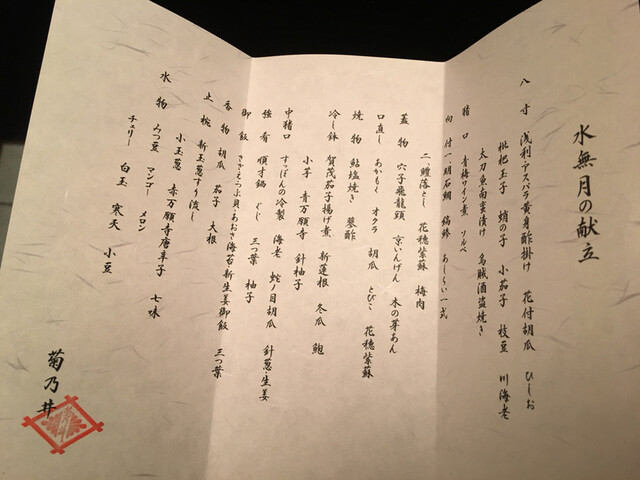 水無月の献立
八寸 浅利アスパラ黄身酢掛け 花付胡瓜 ひしお
枇杷玉子 蛸の子 小茄子 枝豆 川海老
太刀魚南蛮漬け 烏賊酒盗焼き
猪口 青梅ワイン煮 ソルベ
向付 一、明石鯛 縞鯵 あしらい一式
二、鱧落とし 花穂紫蘇 梅肉
蓋物 穴子飛龍頭 京いんげん 木の芽あん
口直し あかもく オクラ 胡瓜 とびこ 花穂紫蘇
焼物 鮎塩焼き 蓼酢
冷し鉢 賀茂茄子揚げ煮 新蓮根 冬瓜 鮑
小芋 青万願寺 針柚子
中猪口 すっぽんの冷製 海老 蛇ノ目胡瓜 針葱・生姜
強肴 順才鍋 ぐじ 三つ葉 柚子
御飯 さかえつぶ貝・あおさ海苔新生姜御飯 三つ葉
香物 胡瓜 茄子 大根
止椀 新玉葱すり流し
小玉葱 赤万願寺唐辛子 七味
水物 みつ豆 マンゴー メロン
チェリー 白玉 寒天 小豆
菊乃井